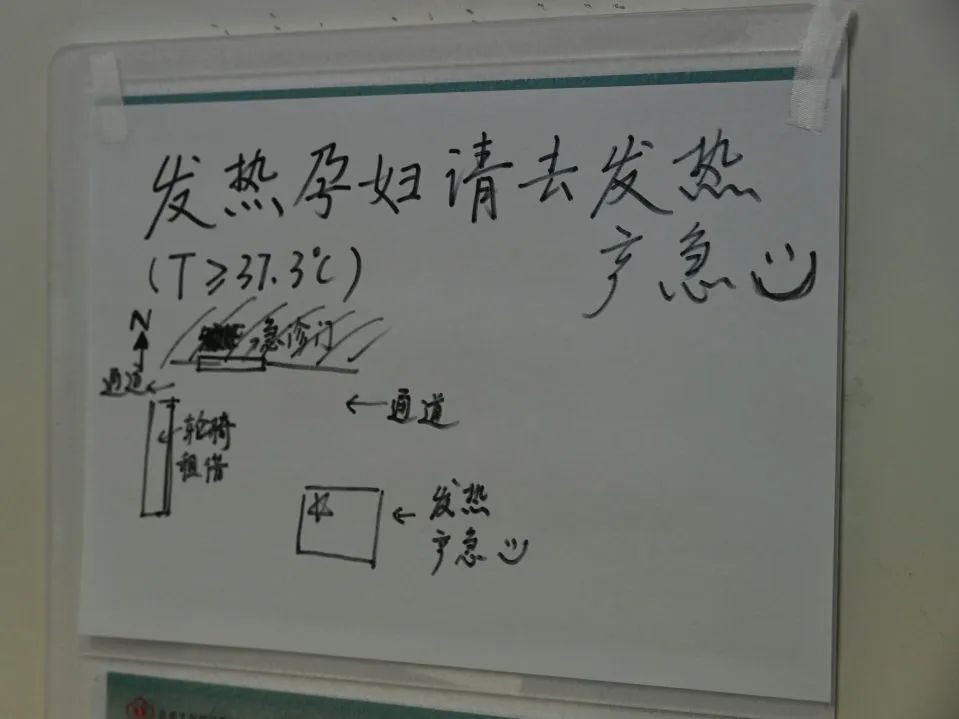 发热孕妇请去发热
产急
(T≥37.3℃)
N
急诊门
通道←
←通道
←轮骑
租借
←发热
产急